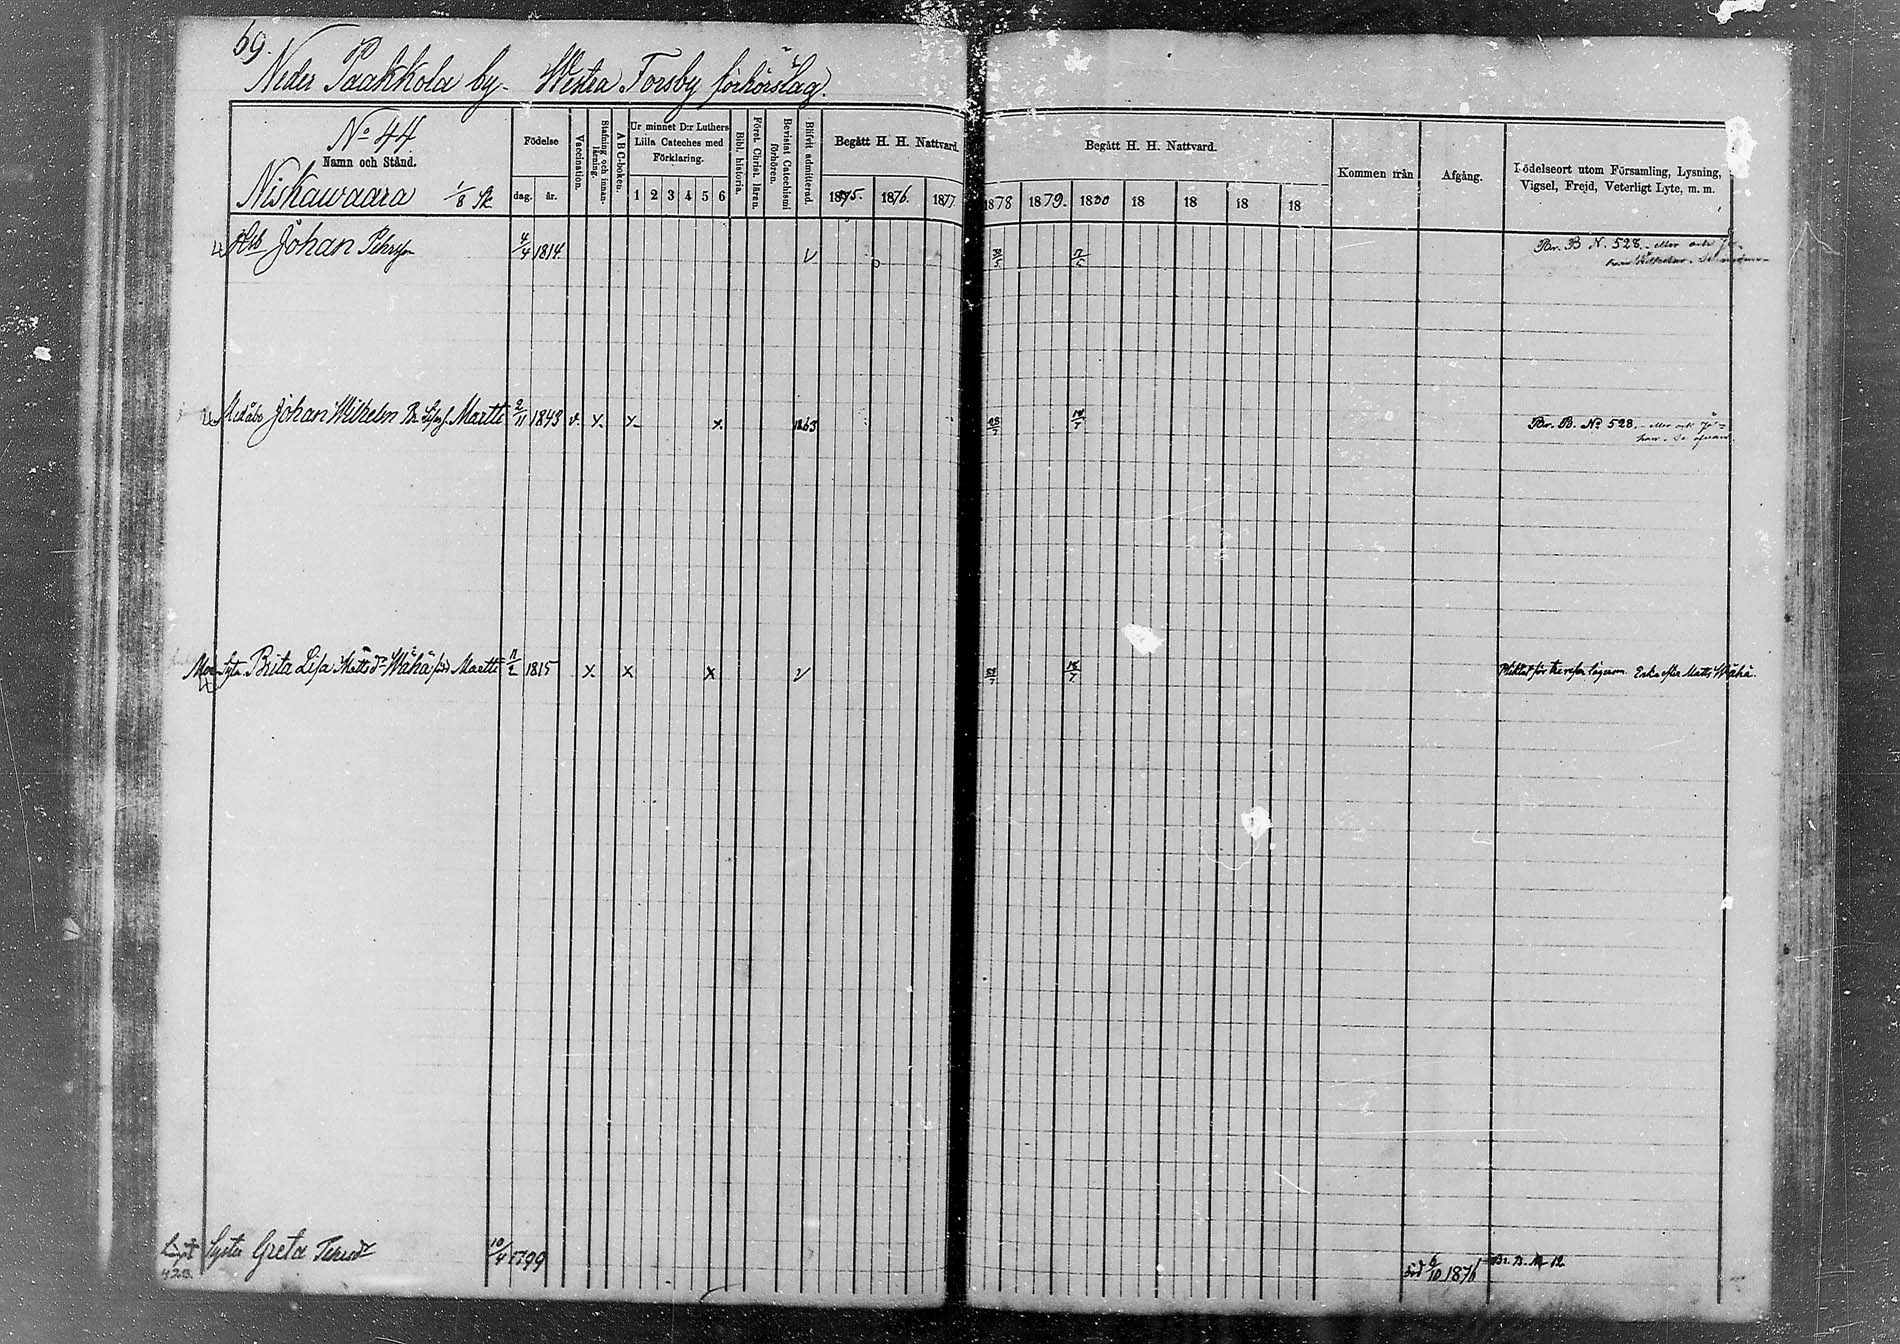 69.
Neder Paakkola by. Westra Forsby förhörslag.
No 44.
Namn och Stånd.
Niskawaara 1/8 Sk
Födelse
dag. år.
Vaccination.
Stafning och innan-läsning.
A B C-boken.
Ur minnet D:r Luthers
Lilla Cateches med
Förklaring.
1 2 3 4 5 6
Bibl. historia.
Föret. Christ. lären.
Bevistat Catechismi förhören.
Blifvit admitterad.
Begått H. H. Nattvard.
1875. 1876. 1877.
Begått H. H. Nattvard.
1878 1879. 1880 18 18 18 18
Kommen från
Afgång.
Födelseort utom Församling, Lysning,
Vigsel, Frejd, Veterligt Lyte, m. m.
Johan Pehrsson 4/4 1814. Br. B N. 528.
Medåbo Johan Wilhelm Martti 2/11 1843 v. x x x 1863 28/7 18/7 Br. B. No 528.
Brita Lisa Matsdr Wähä Martti 11/2 1815 x x x v 28/7 18/7 Enka efter Matts Wähä.
Syster Greta Persdr 10/4 1799 död 6/10 1876 Br. B. No 12
423.